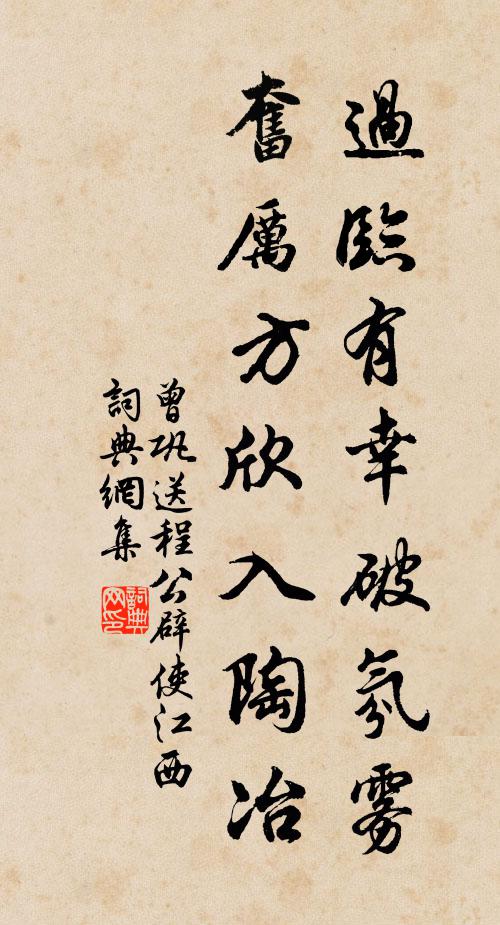 過臨有幸破氛雾
奮厲方欣入陶冶
曾巩送程公辟使江西
詞典網集
詞典
网印